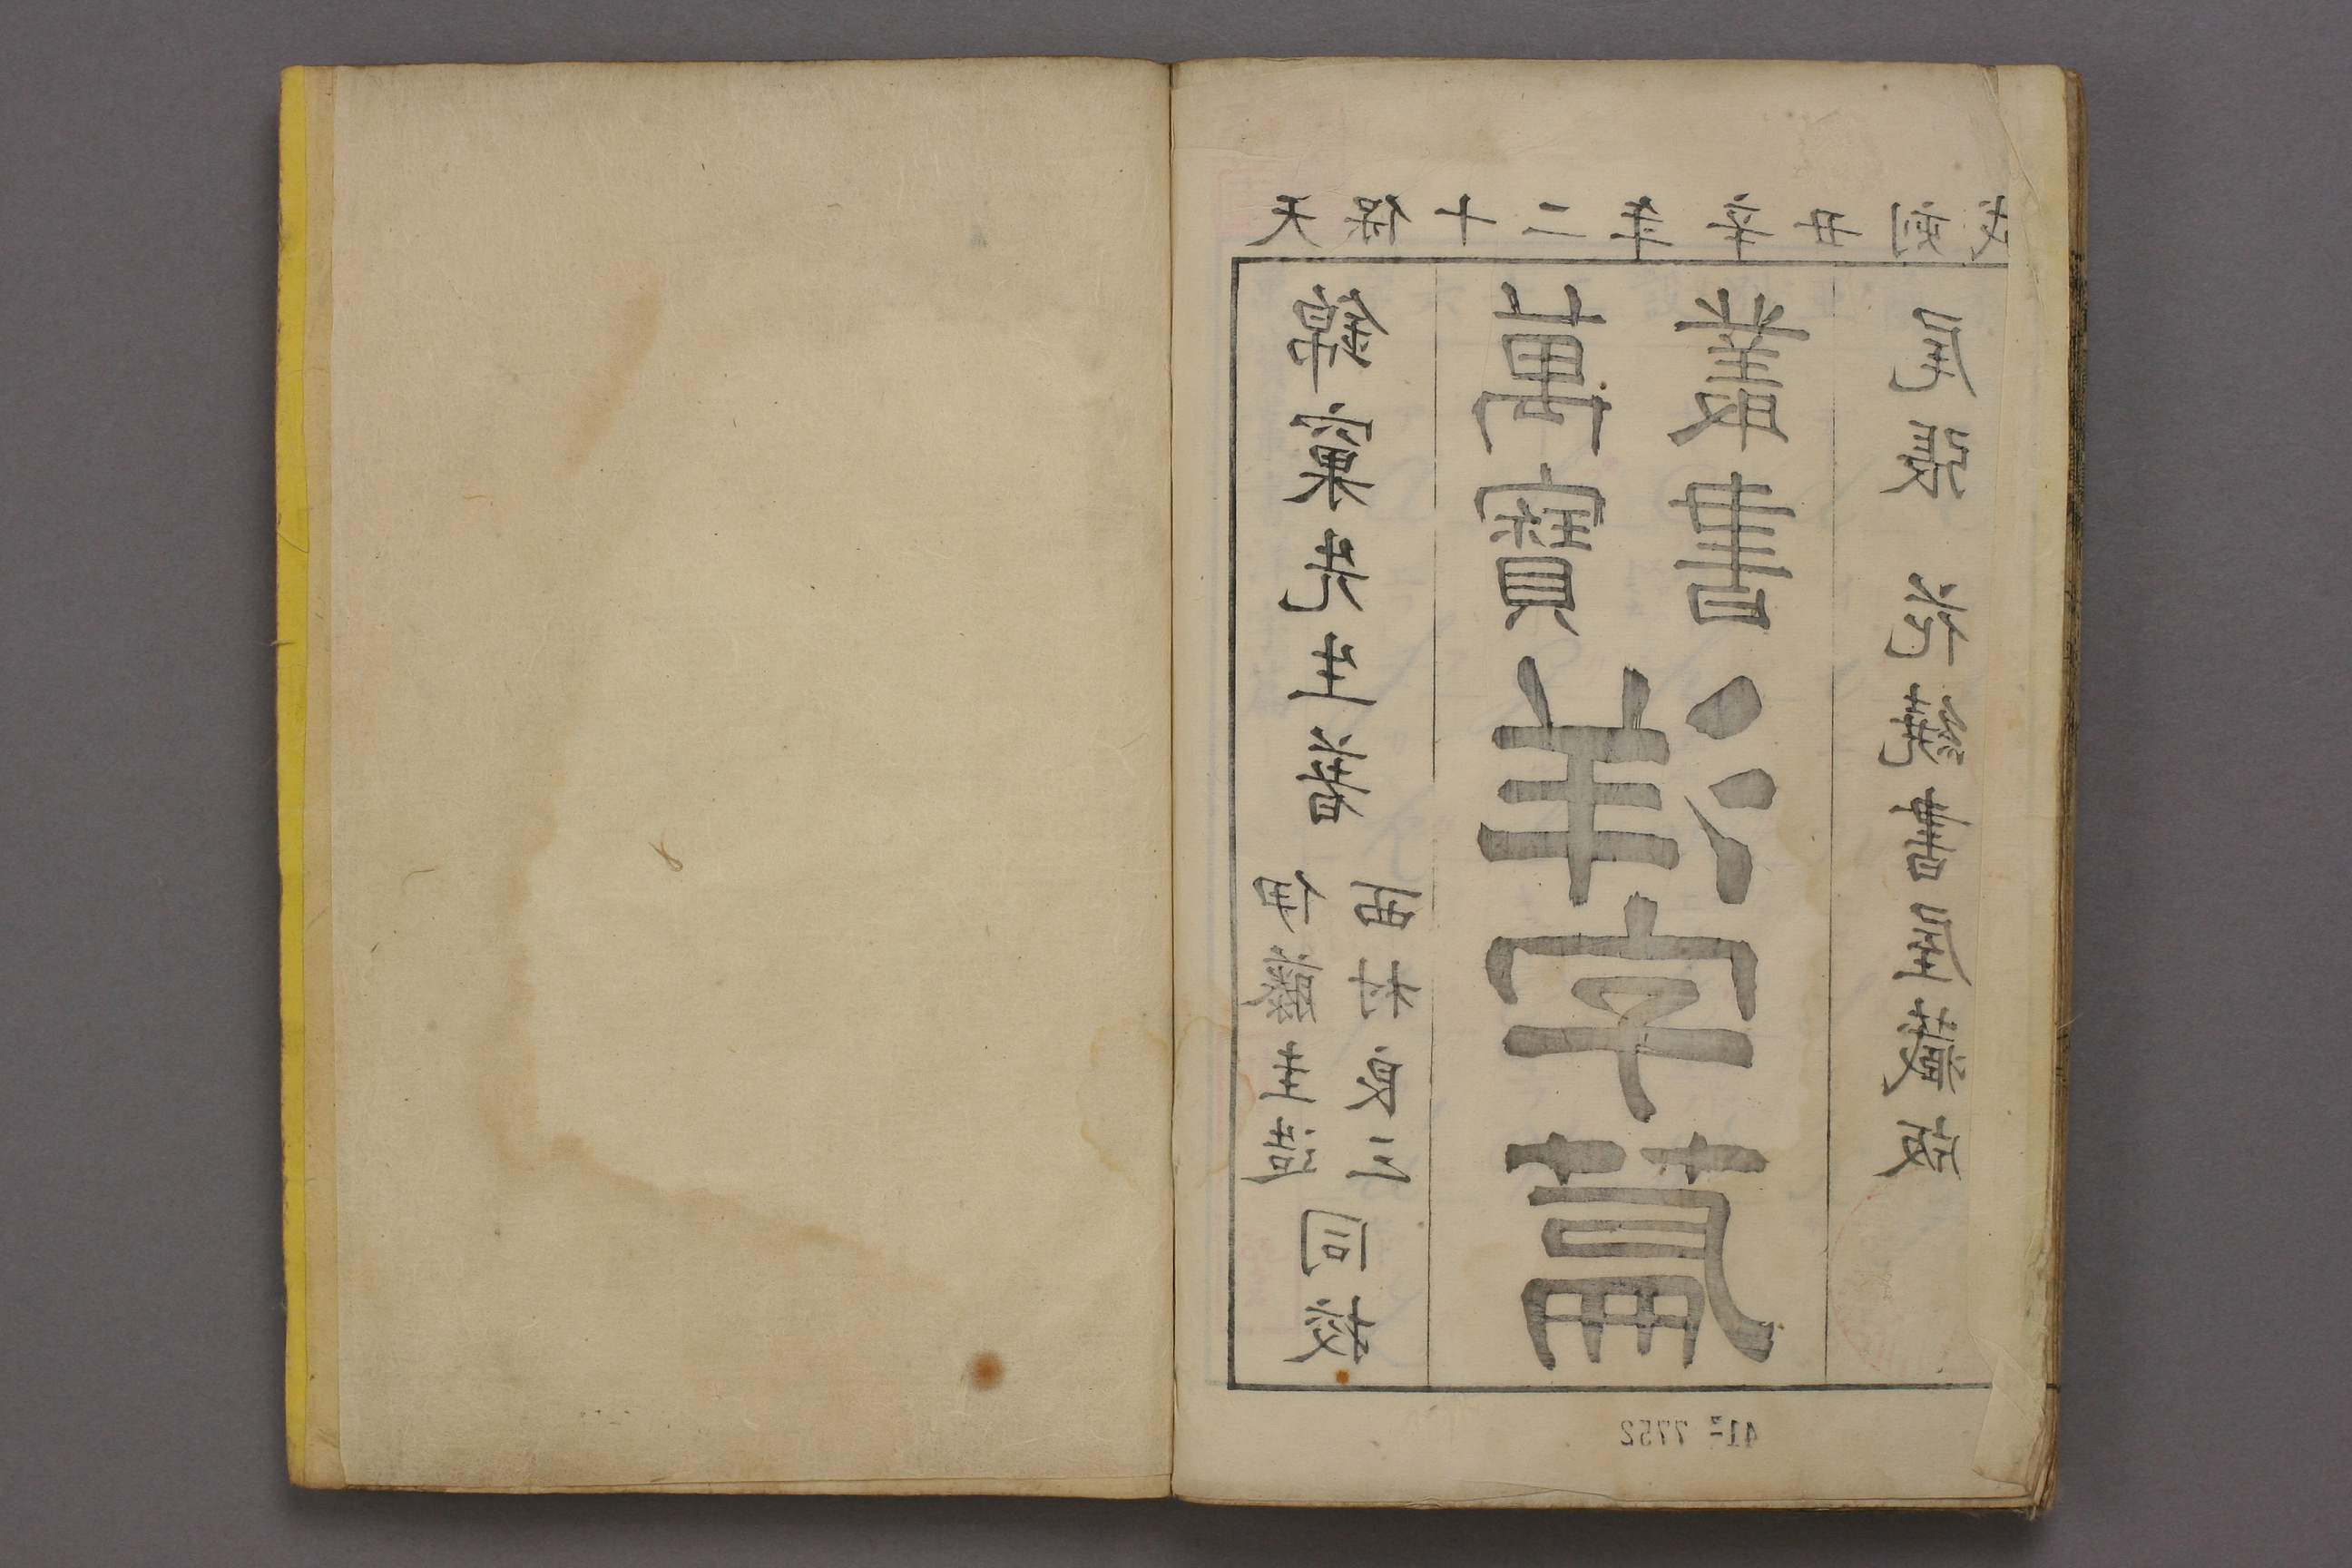 天保十二年辛丑刻成
錦窠先生著
伊藤圭
西村良三
同校
萬寶
叢書
洋字篇
尾張 花繞書屋藏版
7752